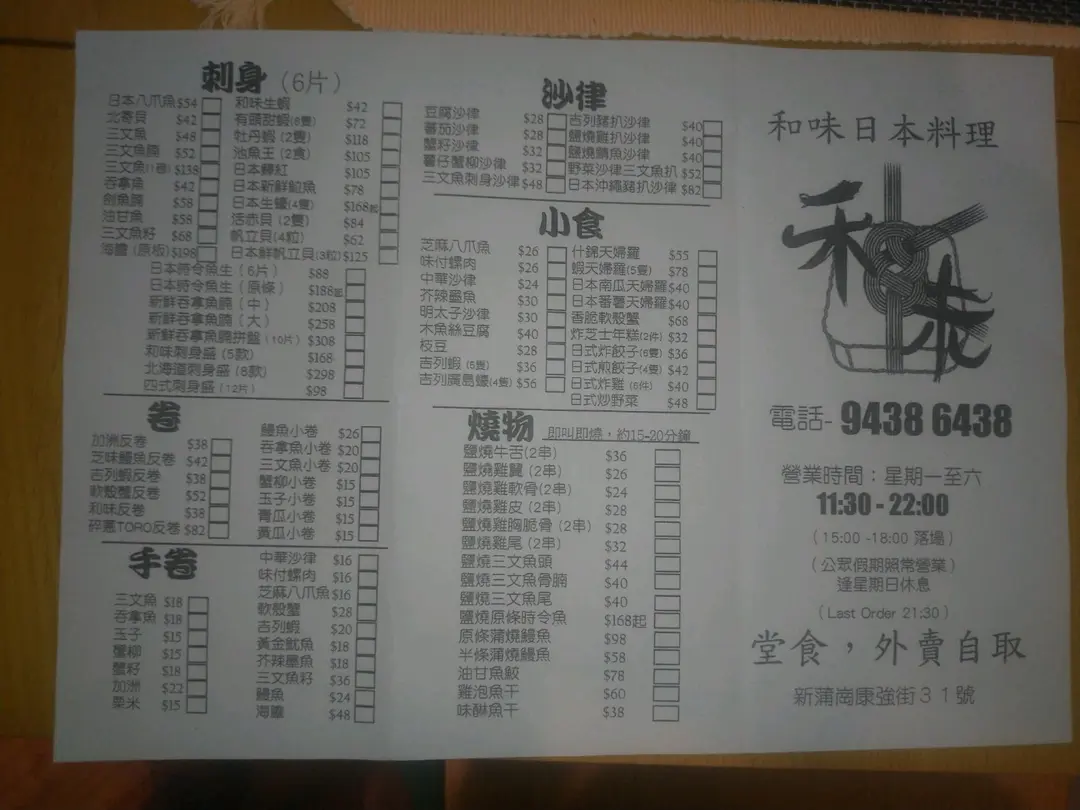 刺身（6片）
日本八爪魚 $54
北寄貝 $42
三文魚 $48
三文魚腩 $52
三文魚 $138
吞拿魚 $42
劍魚腩 $58
油甘魚 $58
三文魚籽 $68
海膽 (原板) $198
和味生蝦 $42
有頭甜蝦(8隻) $72
牡丹蝦 (2隻) $118
池魚王 (2食) $105
日本 $105
日本新鮮魚 $78
日本生蠔(4隻) $168起
活赤貝 (2隻) $84
帆立貝(4粒) $62
日本鮮帆立貝(3粒) $125
日本時令魚生 (6片) $88
日本時令魚生 (原條) $188起
新鮮吞拿魚腩 (中) $208
新鮮吞拿魚腩 (大) $258
新鮮吞拿魚腩拼盤 (10片) $308
和味刺身盛 (5款) $168
北海道刺身盛 (8款) $298
四式刺身盛 (12片) $98
卷
加洲反卷 $38
芝味鰻魚反卷 $42
吉列蝦反卷 $38
軟殼蟹反卷 $52
和味反卷 $38
碎蔥TORO反卷 $82
鰻魚小卷 $26
吞拿魚小卷 $20
三文魚小卷 $20
蟹柳小卷 $15
玉子小卷 $15
青瓜小卷 $15
黃瓜小卷 $15
手卷
三文魚 $18
吞拿魚 $18
玉子 $15
蟹柳 $15
蟹籽 $18
加洲 $22
粟米 $15
中華沙律 $16
味付螺肉 $16
芝麻八爪魚 $16
軟殼蟹 $28
吉列蝦 $20
黃金魷魚 $18
芥辣墨魚 $18
三文魚籽 $36
鰻魚 $24
海膽 $48
沙律
豆腐沙律 $28
蕃茄沙律 $28
蟹籽沙律 $32
薯仔蟹柳沙律 $32
三文魚刺身沙律 $48
吉列豬扒沙律 $40
鹽燒雞扒沙律 $40
鹽燒鯖魚沙律 $40
野菜沙律三文魚扒 $52
日本沖繩豬扒沙律 $82
小食
芝麻八爪魚 $26
味付螺肉 $26
中華沙律 $24
芥辣墨魚 $30
明太子沙律 $30
木魚絲豆腐 $40
枝豆 $28
吉列蝦 (5隻) $36
吉列廣島蠔(4隻) $56
什錦天婦羅 $55
蝦天婦羅(5隻) $78
日本南瓜天婦羅 $40
日本番薯天婦羅 $40
香脆軟殼蟹 $68
炸芝士年糕(2件) $32
日式炸餃子(6隻) $36
日式煎餃子(4隻) $42
日式炸雞 (6件) $40
日式炒野菜 $48
燒物 即叫即燒，約15-20分鐘
鹽燒牛舌(2串) $36
鹽燒雞翼 (2串) $26
鹽燒雞軟骨(2串) $24
鹽燒雞皮 (2串) $28
鹽燒雞胸脆骨 (2串) $28
鹽燒雞尾 (2串) $32
鹽燒三文魚頭 $44
鹽燒三文魚骨腩 $40
鹽燒三文魚尾 $40
鹽燒原條時令魚 $168起
原條蒲燒鰻魚 $98
半條蒲燒鰻魚 $58
油甘魚鮫 $78
雞泡魚干 $60
味醂魚干 $38
和味日本料理
和味
電話- 9438 6438
營業時間：星期一至六
11:30 - 22:00
(15:00 -18:00 落場)
(公眾假期照常營業)
逢星期日休息
(Last Order 21:30)
堂食，外賣自取
新蒲崗康強街３１號